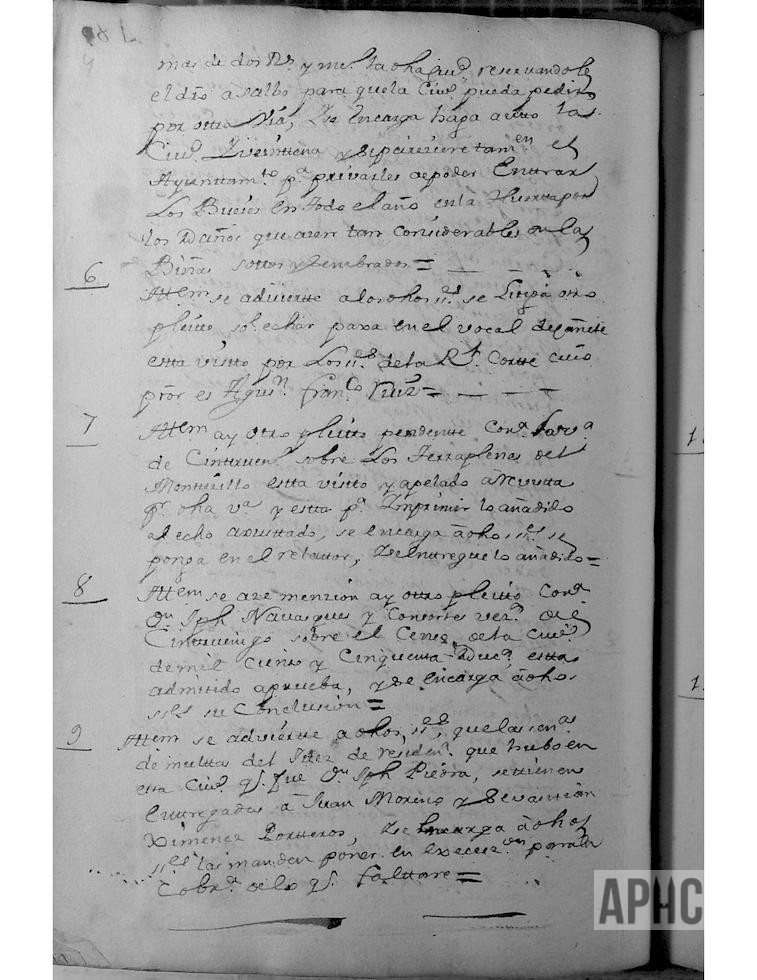 mas de dos Rs. y me. la dha ciud. reseruandole
el dro. a salbo para que la Ciud. pueda pedir
por ottra Via, Y se encarga haga auto la
Ciud. Y veinttena y si pareciere tamen el
Ayuntamto. pa. privarles de poder Enttrar
Los Bueies En todo el año en la Huertta por
los Daños que acen tan Considerables en las
Biñas sottos y Sembrados =
6
Attem se advierte a los dhos srs. se Litiga otro
pleito, se. echar para en el vocal de cañete
esta visto por Los srs. de la Rl. Cortte cuio
pror es Agusn. Franco. Ruiz =
7
Attem ay otro pleito pendiente Cona. la va.
de Cintruenigo. sobre Los Terraplenes del
Montecillo estta visto y apelado a Revista
pr. dha va. y estta pa. Imprimir lo añadido
al echo axusttado, se encarga a dhos srs. se
ponga en el relator, Y se entregue lo añadido =
8
Attem se aze menzion ay otro pleito Cona.
Dn. Jph Nauasques y Consortes vezs. de
Cintruenigo sobre el Censo de la Ciud.
de mil Ciento y Cinquenta Ducs. estta
admitido a prueba, y se encarga a dhos
srs. su Conclusion =
9
Attem se advierte a dhos srs. que las cens.
de multas del Juez de residena. que hubo en
esta Ciud. qe. fue Dn. Jph Piedra, se ttienen
Enttregadas a Juan Moreno y Sevasttian
Ximenez Portteros, Y se encarga a dhos
srs. las manden poner en Execuzon para la
Cobraa. de los qe. falttare =
APHC